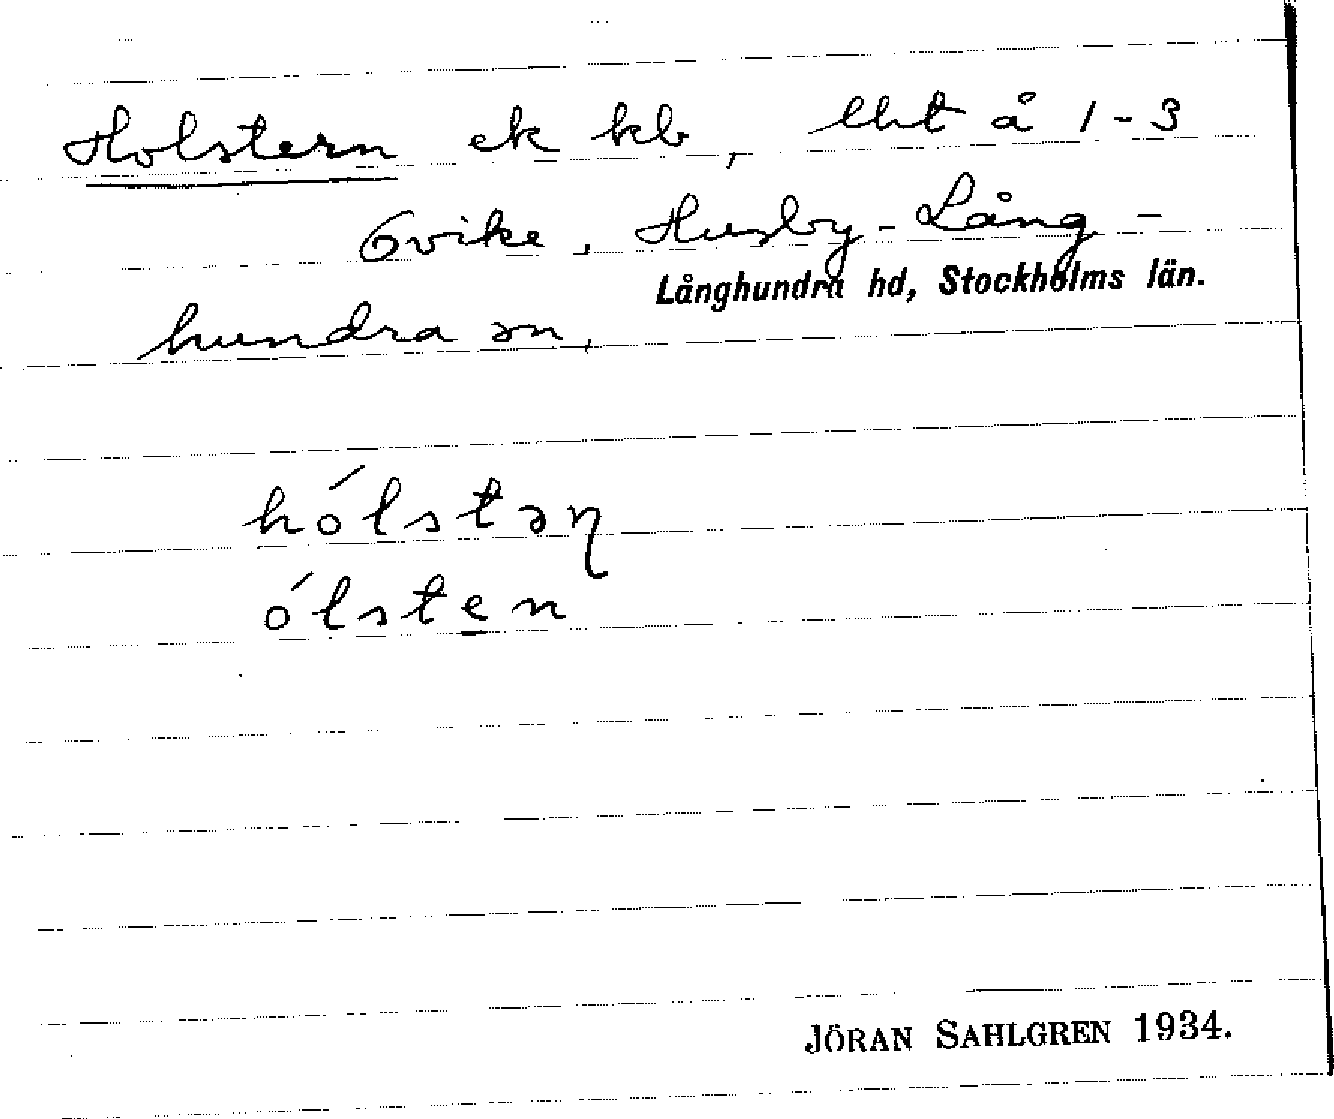 Holstern ek kb, lht å 1-3
6vike, Husby-Lång-
Långhundra hd, Stockholms län.
hundra sn,
hólstəη
ólsten
JÖRAN SAHLGREN 1934.